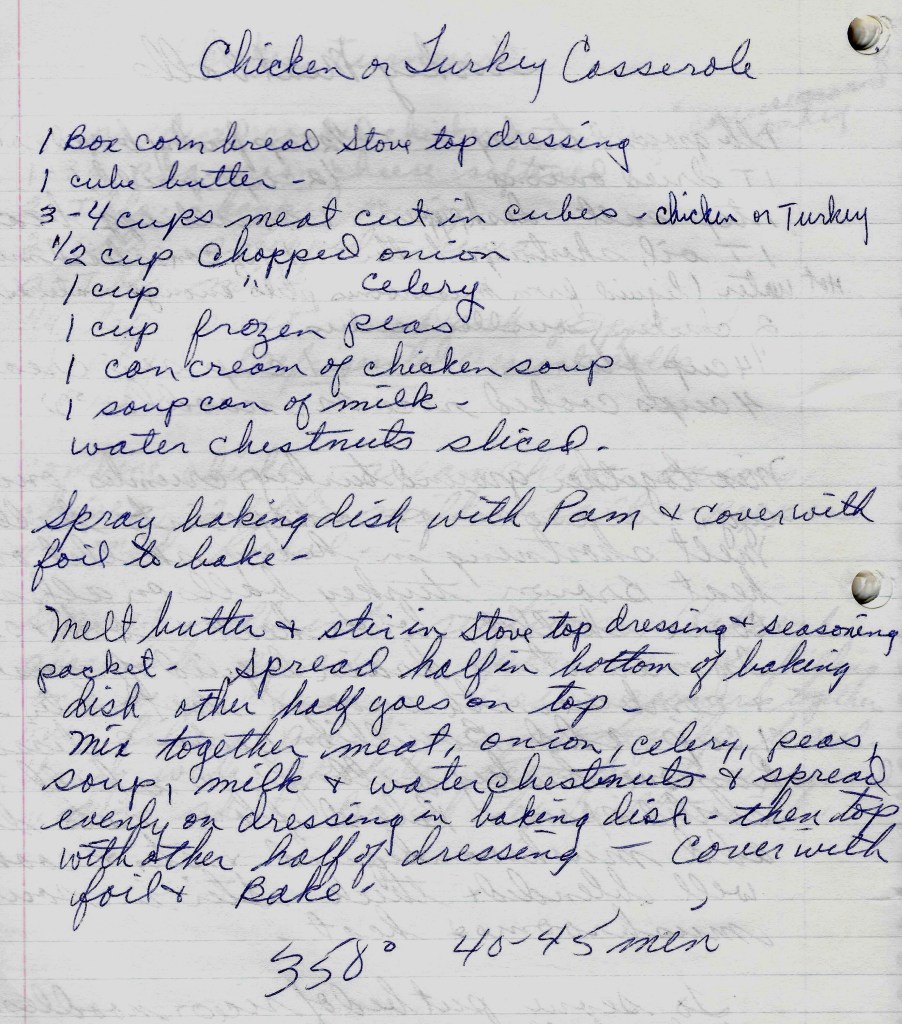 Chicken or Turkey Casserole
1 Box corn bread Stove top dressing
1 cube butter -
3-4 cups meat cut in cubes - chicken or Turkey
1/2 cup Chopped onion
1 cup " celery
1 cup frozen peas
1 can cream of chicken soup
1 soup can of milk -
water chestnuts sliced.
Spray baking dish with Pam & cover with
foil to bake -
Melt butter & stir in Stove top dressing & seasoning
packet - Spread half in bottom of baking
dish other half goes on top -
Mix together meat, onion, celery, peas,
soup, milk & water chestnuts & spread
evenly on dressing in baking dish - then top
with other half of dressing - Cover with
foil & Bake -
350° 40-45 min